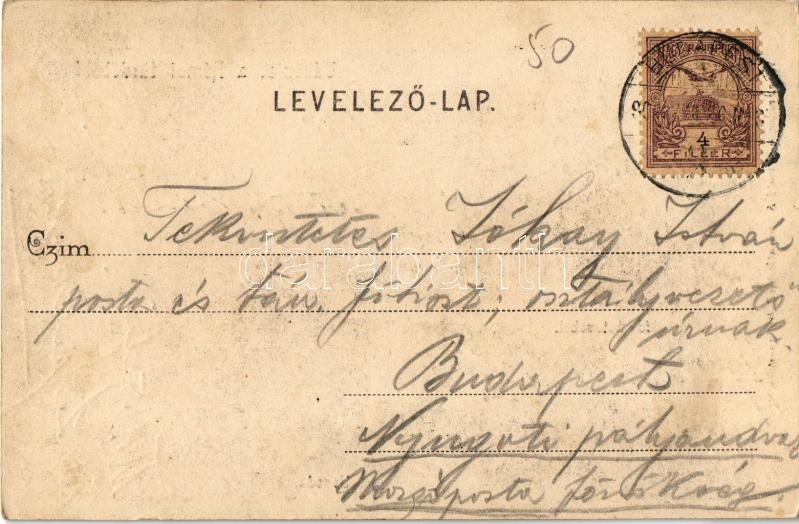 50
LEVELEZŐ-LAP.
4
FILLÉR
Czim Tekintetes Jókay István
posta és táv. főtiszt, osztályvezető
úrnak
Budapest
Nyugoti pályaudvar
Mozgóposta főnökség.
darabanth